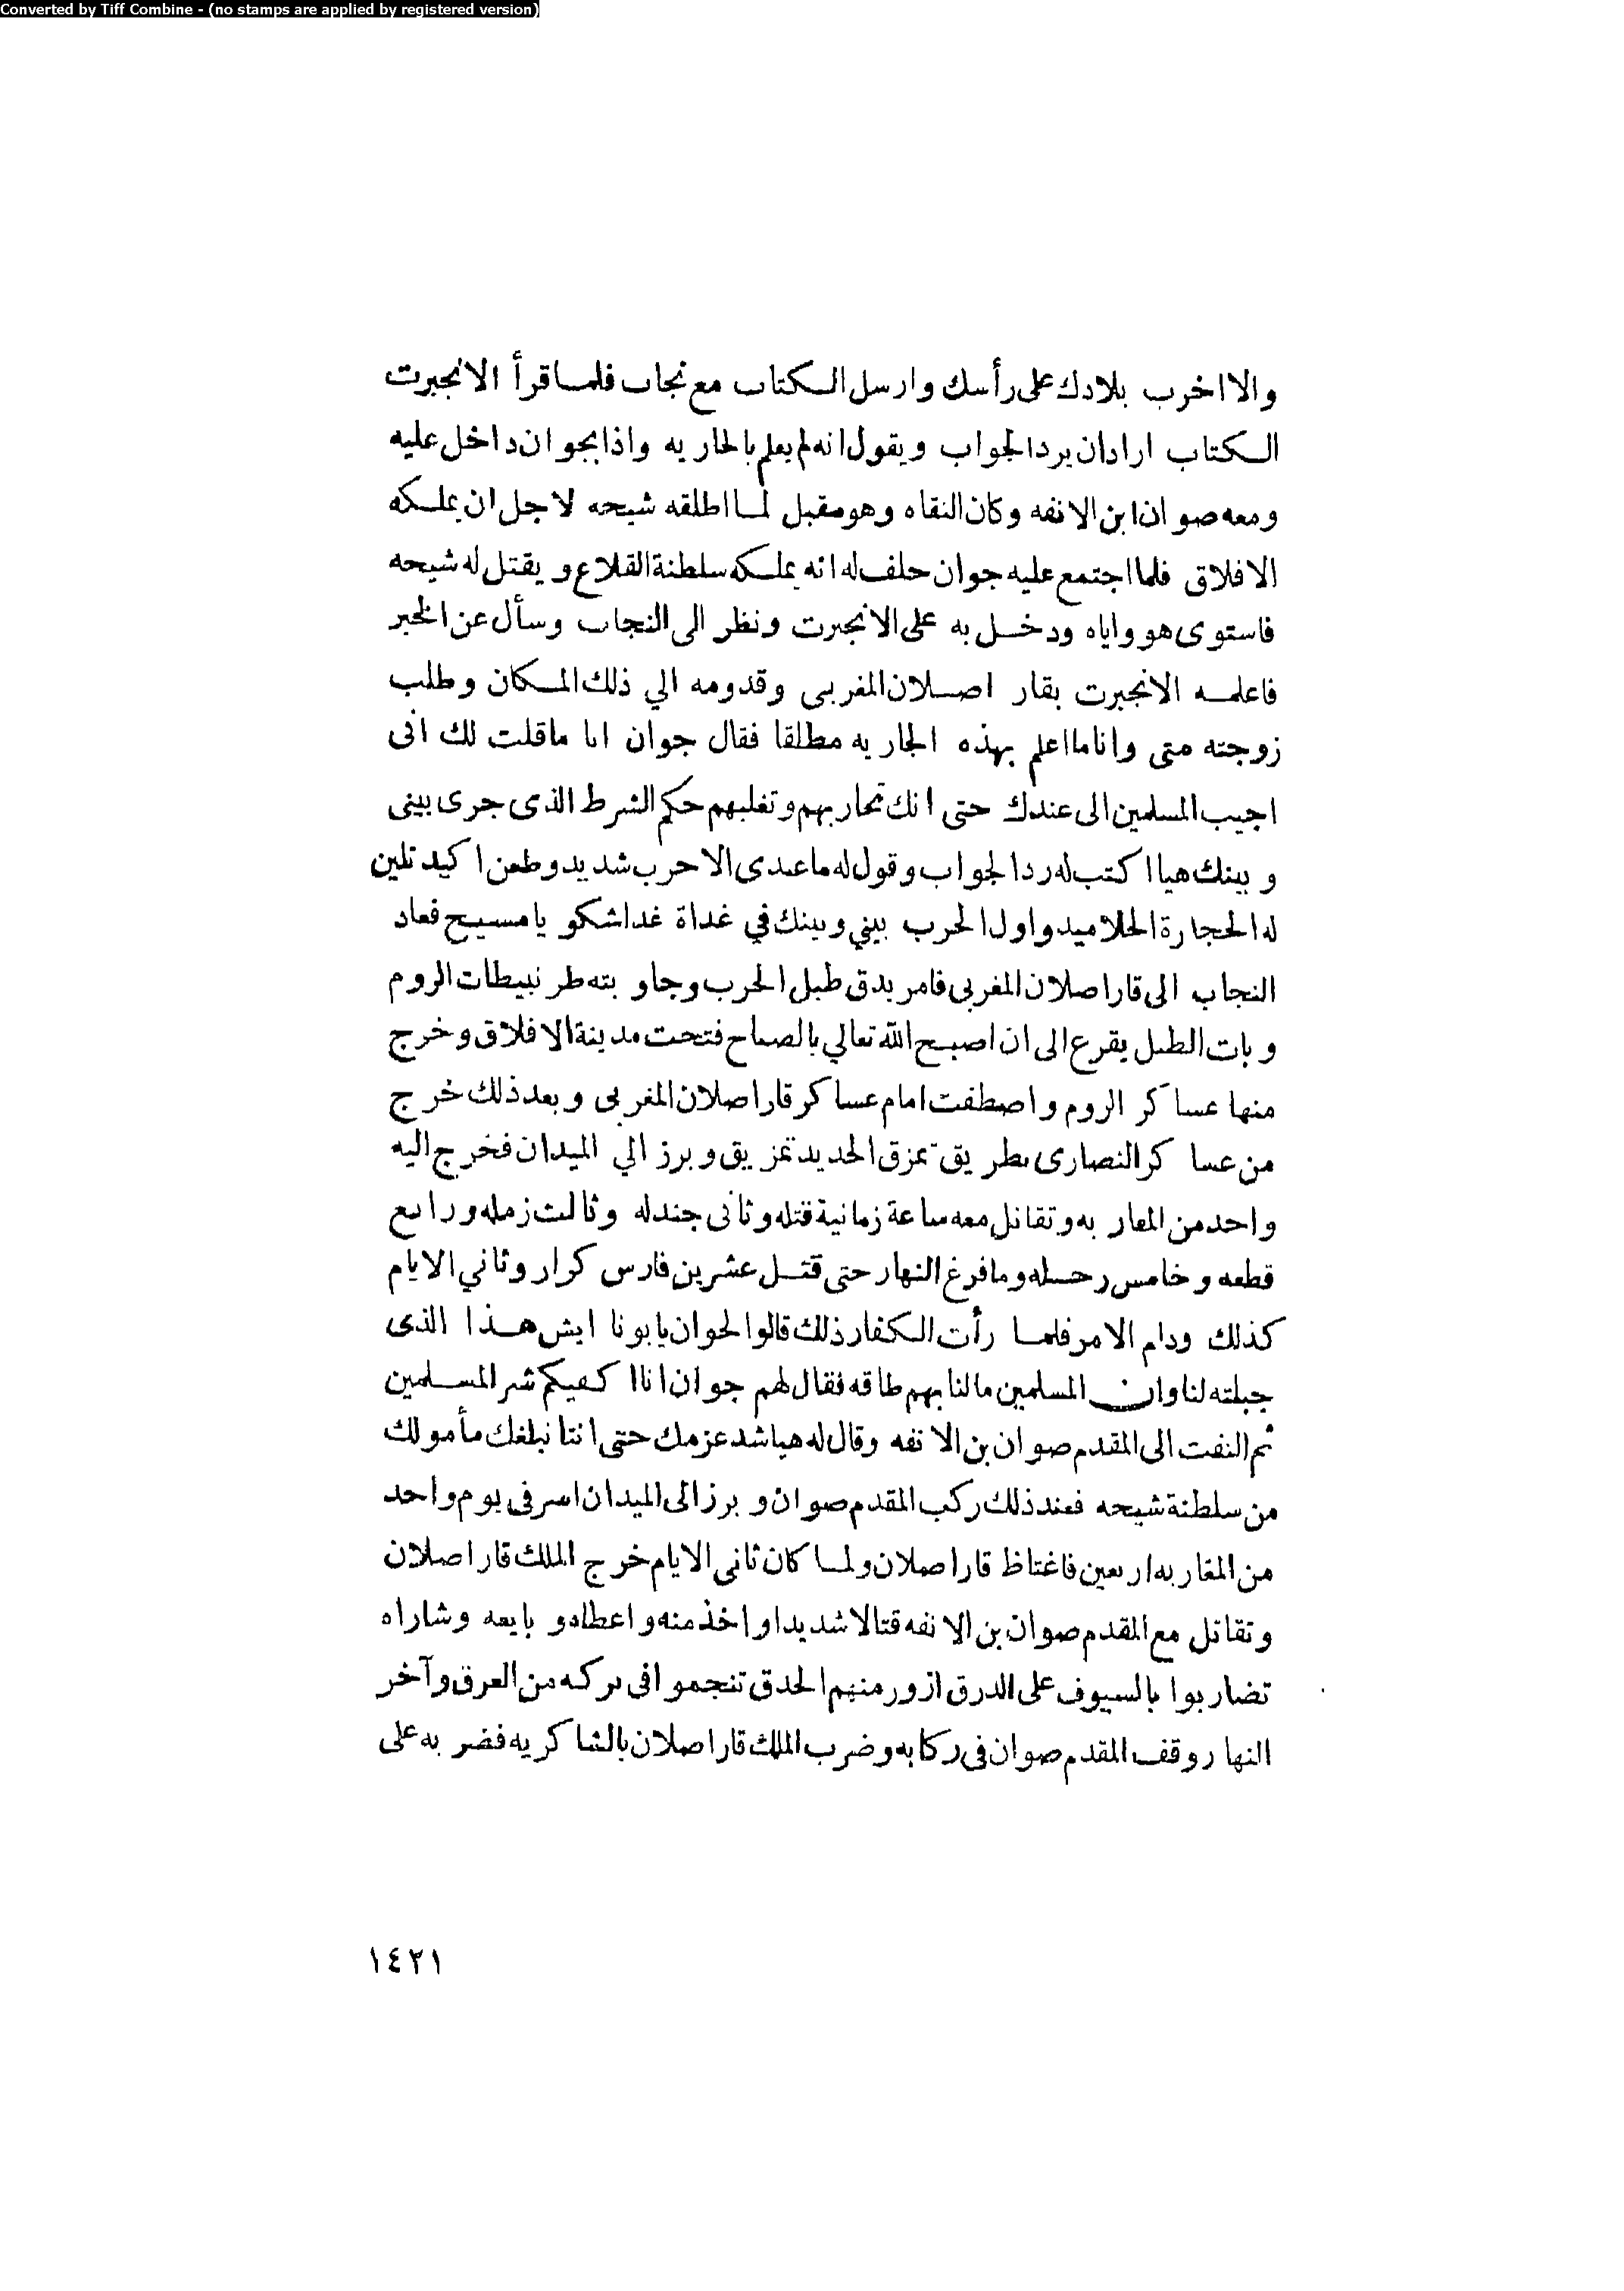 Converted by Tiff Combine - (no stamps are applied by registered version)
والا اخرب بلادك على رأسك وارسل الكتاب مع نجاب فلما قرأ الانجبرت
الكتاب اراد ان يرد الجواب ويقول انه لم يعلم بالجاريه واذا بجوان داخل عليه
ومعه صوان ابن الانفه وكان التقاه وهو مقبل لما اطلقه شيحه لاجل ان يملكه
الافلاق فلما اجتمع عليه جوان حلف له انه يملكه سلطنة القلاع ويقتل له شيحه
فاستوى هو واياه ودخل به على الانجبرت ونظر الى النجاب وسأل عن الخبر
فاعلمه الانجبرت بقار اصلان المغربى وقدومه الي ذلك المكان وطلب
زوجته منى وانا ما اعلم بهذه الجاريه مطلقا فقال جوان انا ما قلت لك انى
اجيب المسلمين الى عندك حتى انك تحاربهم وتغلبهم حكم الشرط الذى جرى بينى
وبينك هيا اكتب له رد الجواب وقول له ما عندى الا حرب شديد وطعن اكيد تلين
له الحجارة الجلاميد واول الحرب بيني وبينك في غداة غدا شكو يا مسيح فعاد
النجاب الى قار اصلان المغربى فامر بدق طبل الحرب وجاوبته طرنبيطات الروم
وبات الطبل يقرع الى ان اصبح الله تعالي بالصباح فتحت مدينة الافلاق وخرج
منها عساكر الروم واصطفت امام عساكر قار اصلان المغربى وبعد ذلك خرج
من عساكر النصارى بطريق تمزق الحديد تمزيق وبرز الي الميدان فخرج اليه
واحد من المغاربه وتقاتل معه ساعة زمانية قتله وثانى جندله وثالث زمله ورابع
قطعه وخامس رحله وما فرغ النهار حتى قتل عشرين فارس كرار وثاني الايام
كذلك ودام الامر فلما رأت الكفار ذلك قالوا لجوان يا بونا ايش هذا الذى
جبلته لنا وان المسلمين ما لنا بهم طاقه فقال لهم جوان انا اكفيكم شر المسلمين
ثم التفت الى المقدم صوان بن الانفه وقال له هيا شد عزمك حتى اننا نبلغك مأمولك
من سلطنة شيحه فعند ذلك ركب المقدم صوان وبرز الى الميدان اسر فى يوم واحد
من المغاربه اربعين فاغتاظ قار اصلان ولما كان ثانى الايام خرج الملك قار اصلان
وتقاتل مع المقدم صوان بن الانفه قتالا شديدا واخذ منه واعطاه وبايعه وشاراه
تضاربوا بالسيوف على الدرق ازور منهم الحدق تنجموا فى بركه من العرق وآخر
النهار وقف المقدم صوان فى ركابه وضرب الملك قار اصلان بالشاكريه فضربه على
١٤٢١